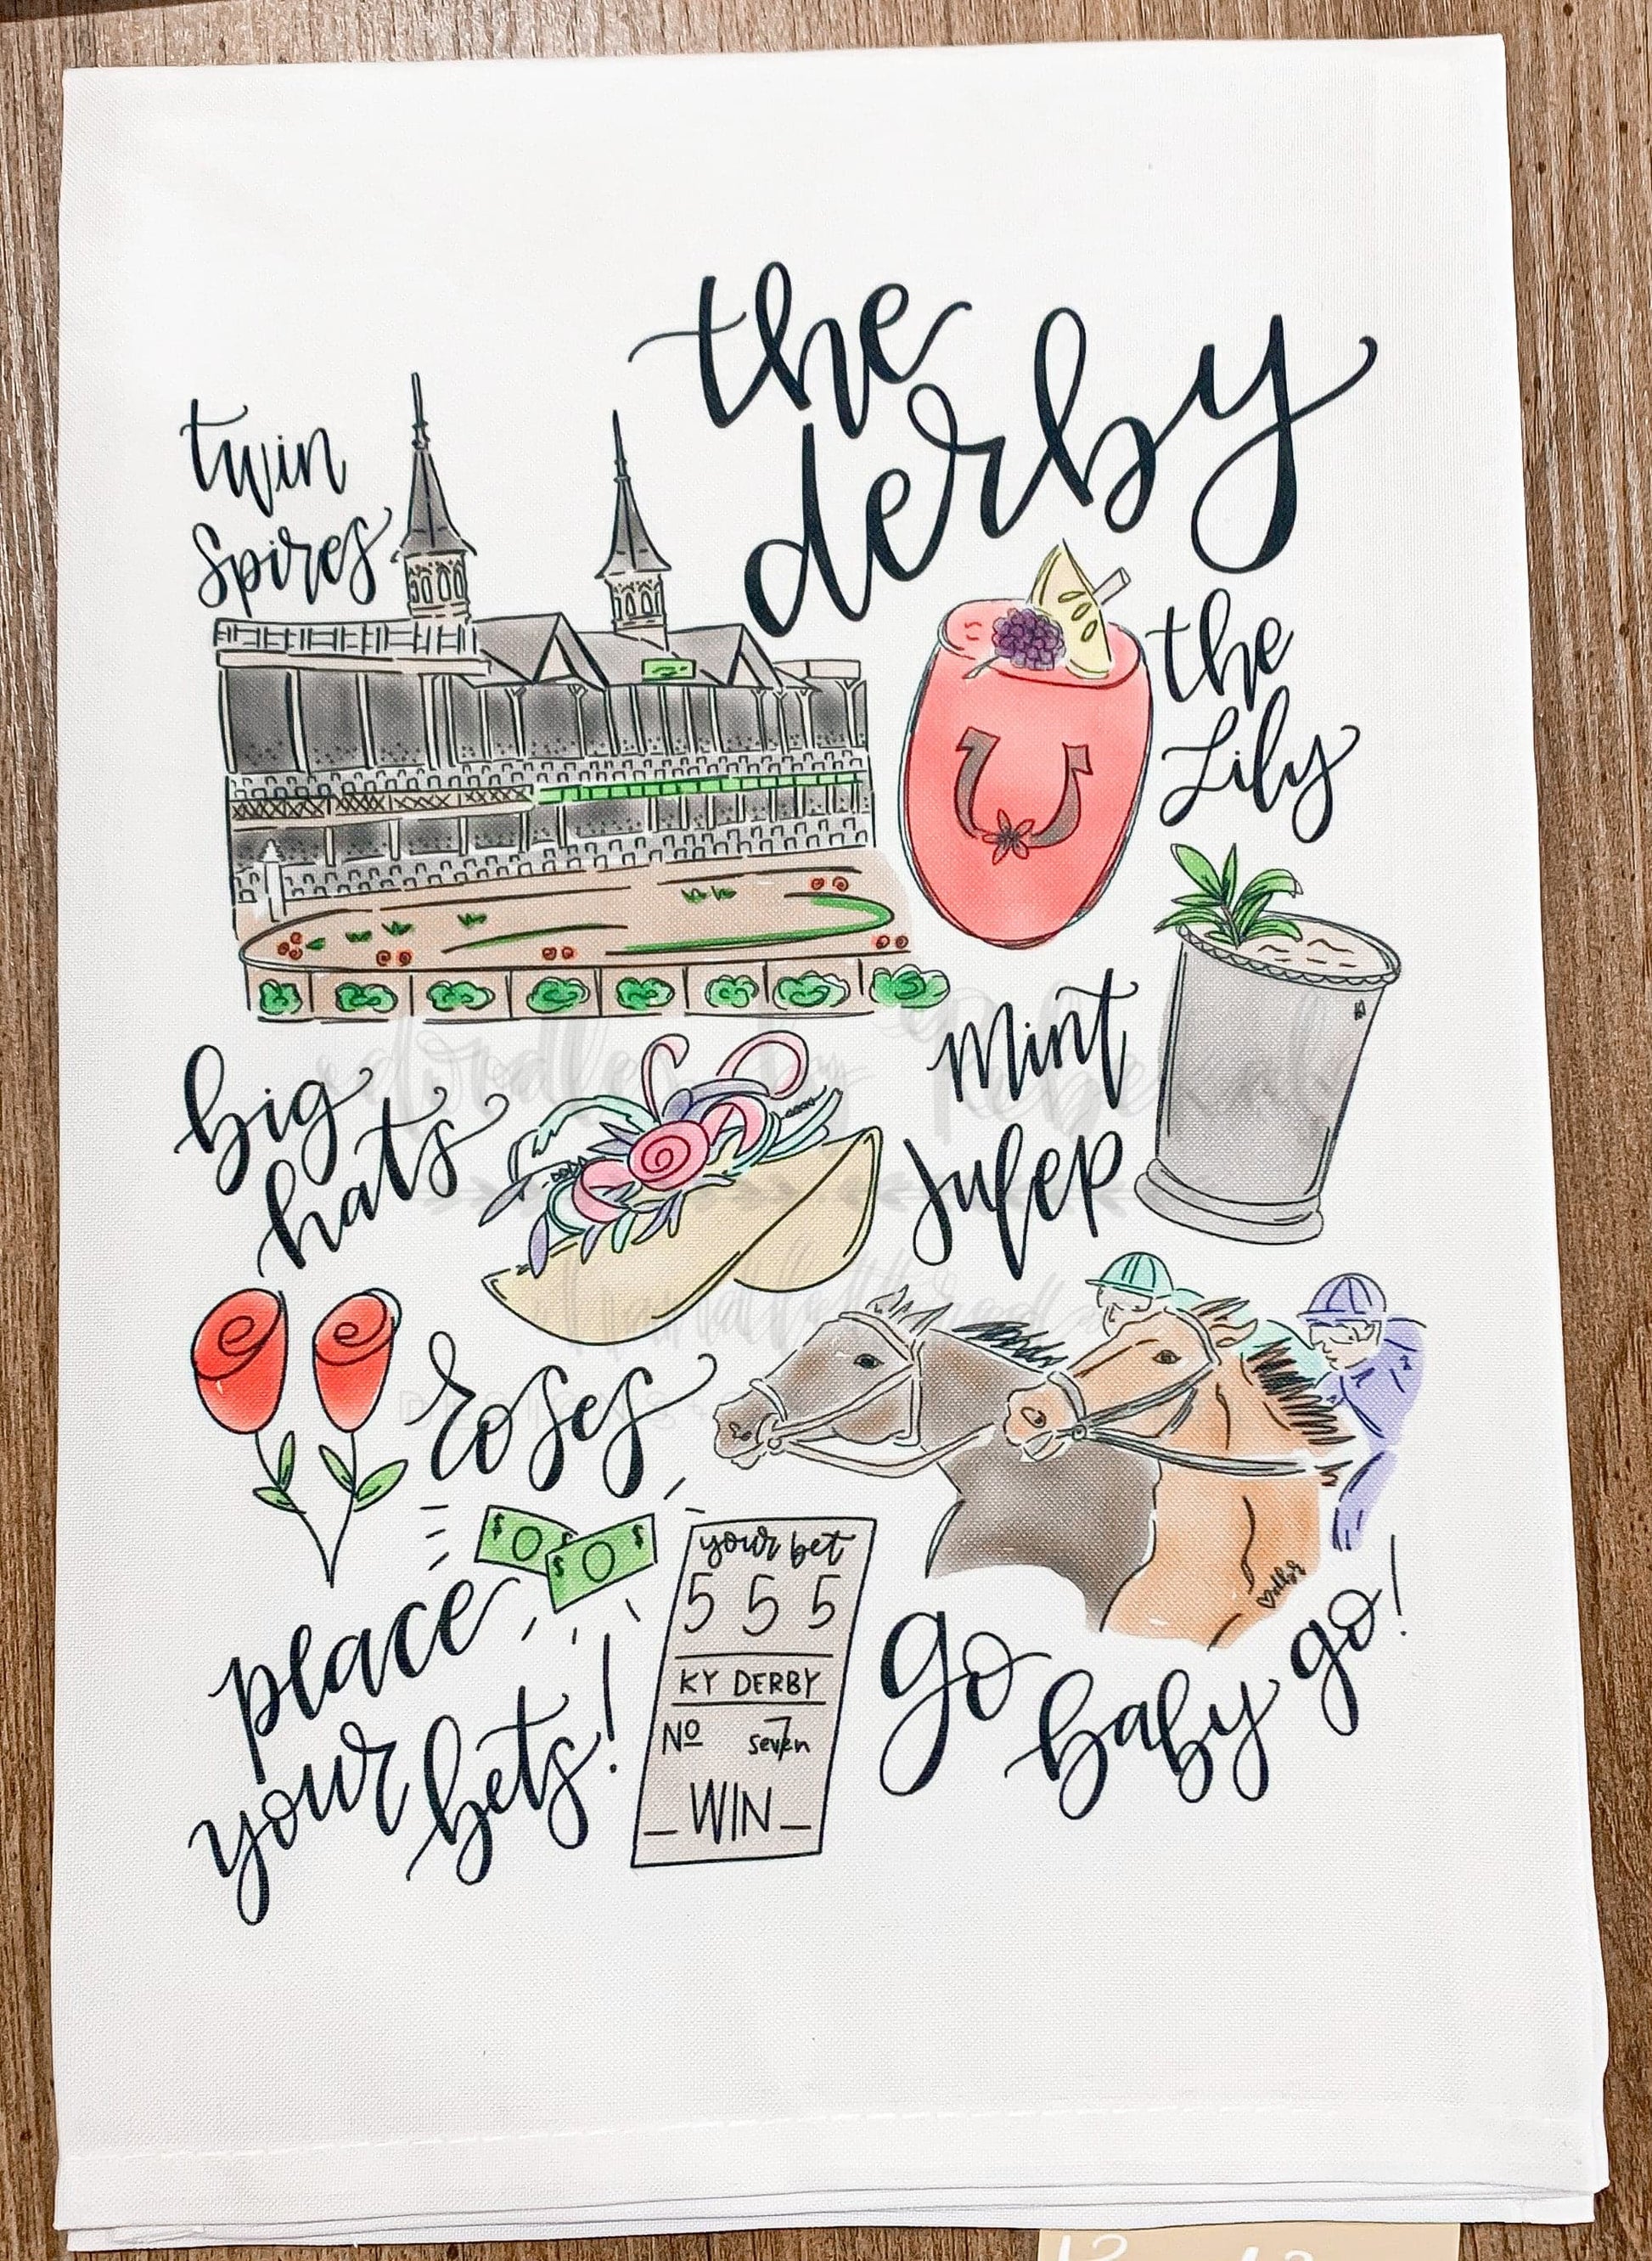 the
derby
twin
spires
the
Lily
mint
julep
big
hats
roses
place
your bets!
$ $
$ $
your bet
5 5 5
KY DERBY
Nº 7
seven
_ WIN _
go
baby go!
doodles by Rebekah